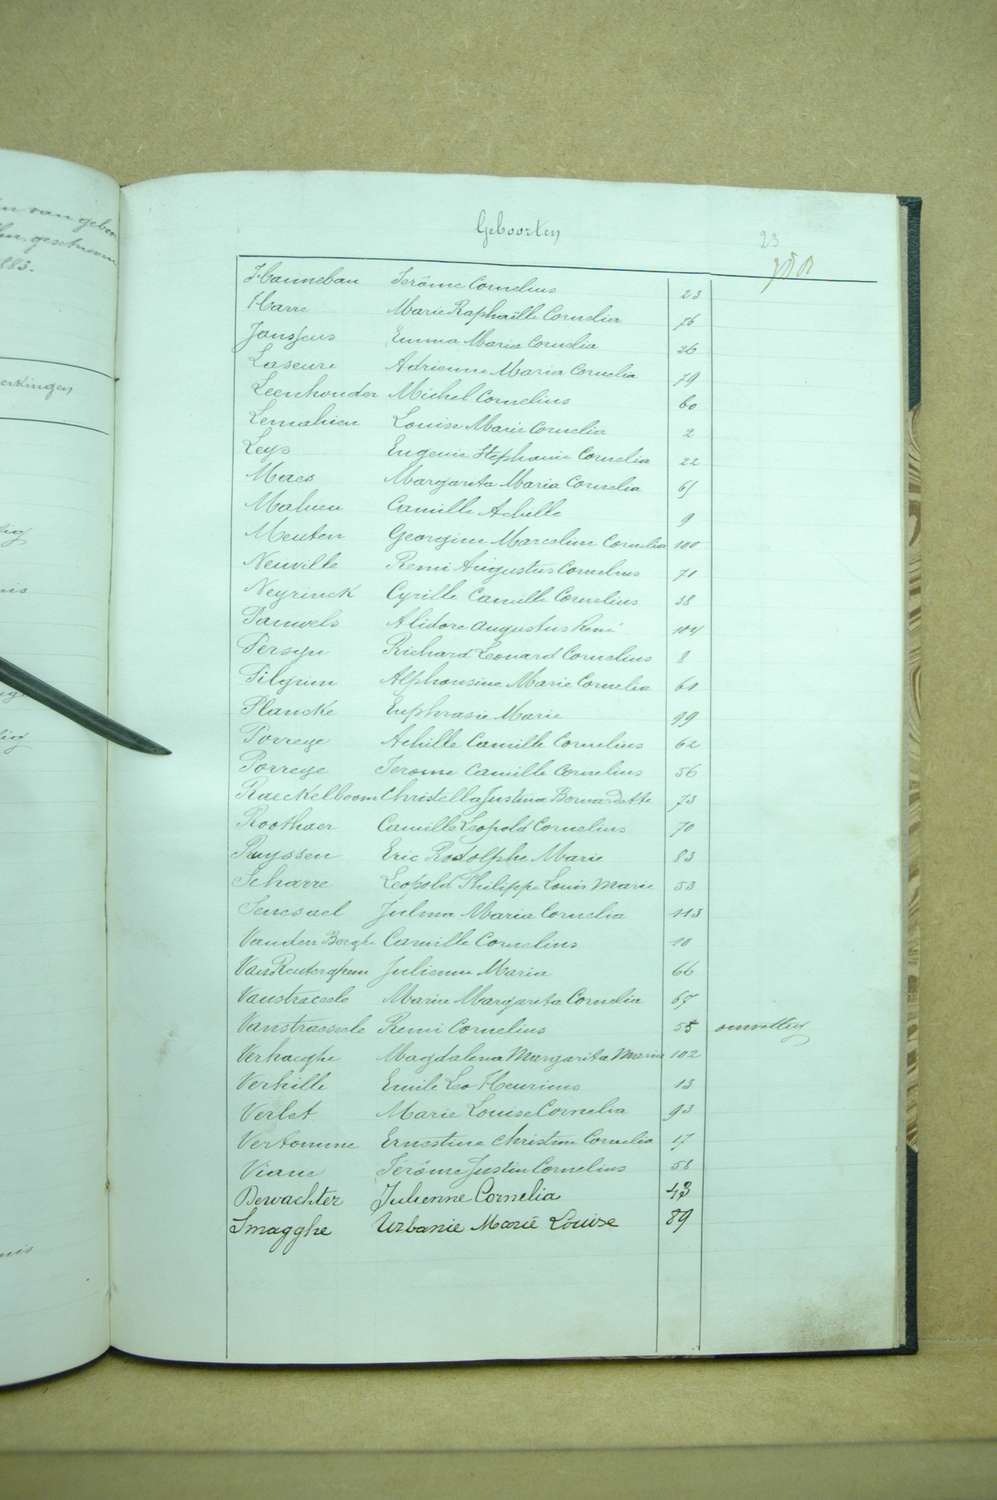 Geboorten
23
Hannebau Jerôme Cornelius 23
Harre Marie Raphaëlle Cornelia 76
Janssens Emma Maria Cornelia 26
Laseure Adrienne Maria Cornelia 79
Leenhouder Michel Cornelius 60
Lemahieu Louise Marie Cornelia 2
Leys Eugenie Stephanie Cornelia 22
Maes Margarita Maria Cornelia 61
Mahieu Camille Achille 9
Meuten Georgine Marceline Cornelia 100
Neuville Remi Augustus Cornelius 71
Neyrinck Cyrille Camille Cornelius 38
Pauwels Alidore Augustus René 104
Persyn Richard Leonard Cornelius 8
Pilgrim Alphonsine Marie Cornelia 61
Plancke Euphrasie Marie 99
Porreye Achille Camille Cornelius 62
Porreye Jerome Camille Cornelius 56
Raeckelboom Christella Justina Bernardette 73
Roothaer Camille Leopold Cornelius 70
Ruyssen Eric Rodolphe Marie 83
Scharre Leopold Philippe Louis Marie 53
Senesael Julma Maria Cornelia 113
Vanden Berghe Camille Cornelius 10
Van Reuterghem Julienne Maria 66
Vanstraceele Maria Margarita Cornelia 67
Vanstraceele Remi Cornelius 55 onwettig
Verhaeghe Magdalena Margarita Maria 102
Verhille Emile Leo Henricus 13
Verlet Marie Louise Cornelia 93
Vertomme Ernestine Christine Cornelia 17
Viane Jerôme Justin Cornelius 58
Dewachter Julienne Cornelia 43
Smagghe Urbanie Marie Louise 89